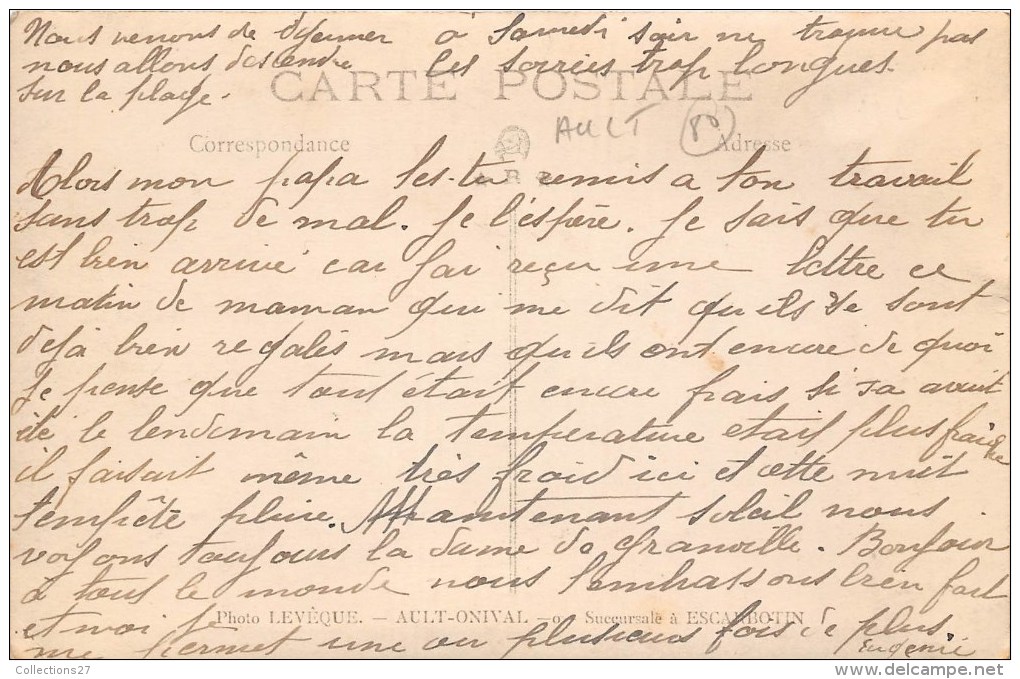 Nous venons de déjeuner
nous allons descendre
sur la plage.
à Samedi soir ne trouve pas
les soirées trop longues.
CARTE POSTALE
AULT 80
Correspondance
Adresse
Alors mon papa t'es-tu remis a ton travail
sans trop de mal. Je l'éspère. Je sais que tu
est bien arrivé car j'ai reçu une lettre ce
matin de maman qui me dit qu'ils se sont
déjà bien régalés mais qu'ils ont encore de quoi
Je pense que tout était encore frais si sa avait
été le lendemain la température etait plus fraiche
il faisait même très froid ici et cette nuit
tempête pluie. Maintenant soleil nous
voyons toujours la dame de Granville. Bonjour
à tous le monde nous t'embrassons bien fort
Photo LEVÊQUE. — AULT-ONIVAL —o— Succursale à ESCARBOTIN
et moi je
me permet une ou plusieurs fois de plus.
Eugénie
Collections27
delcampe.net